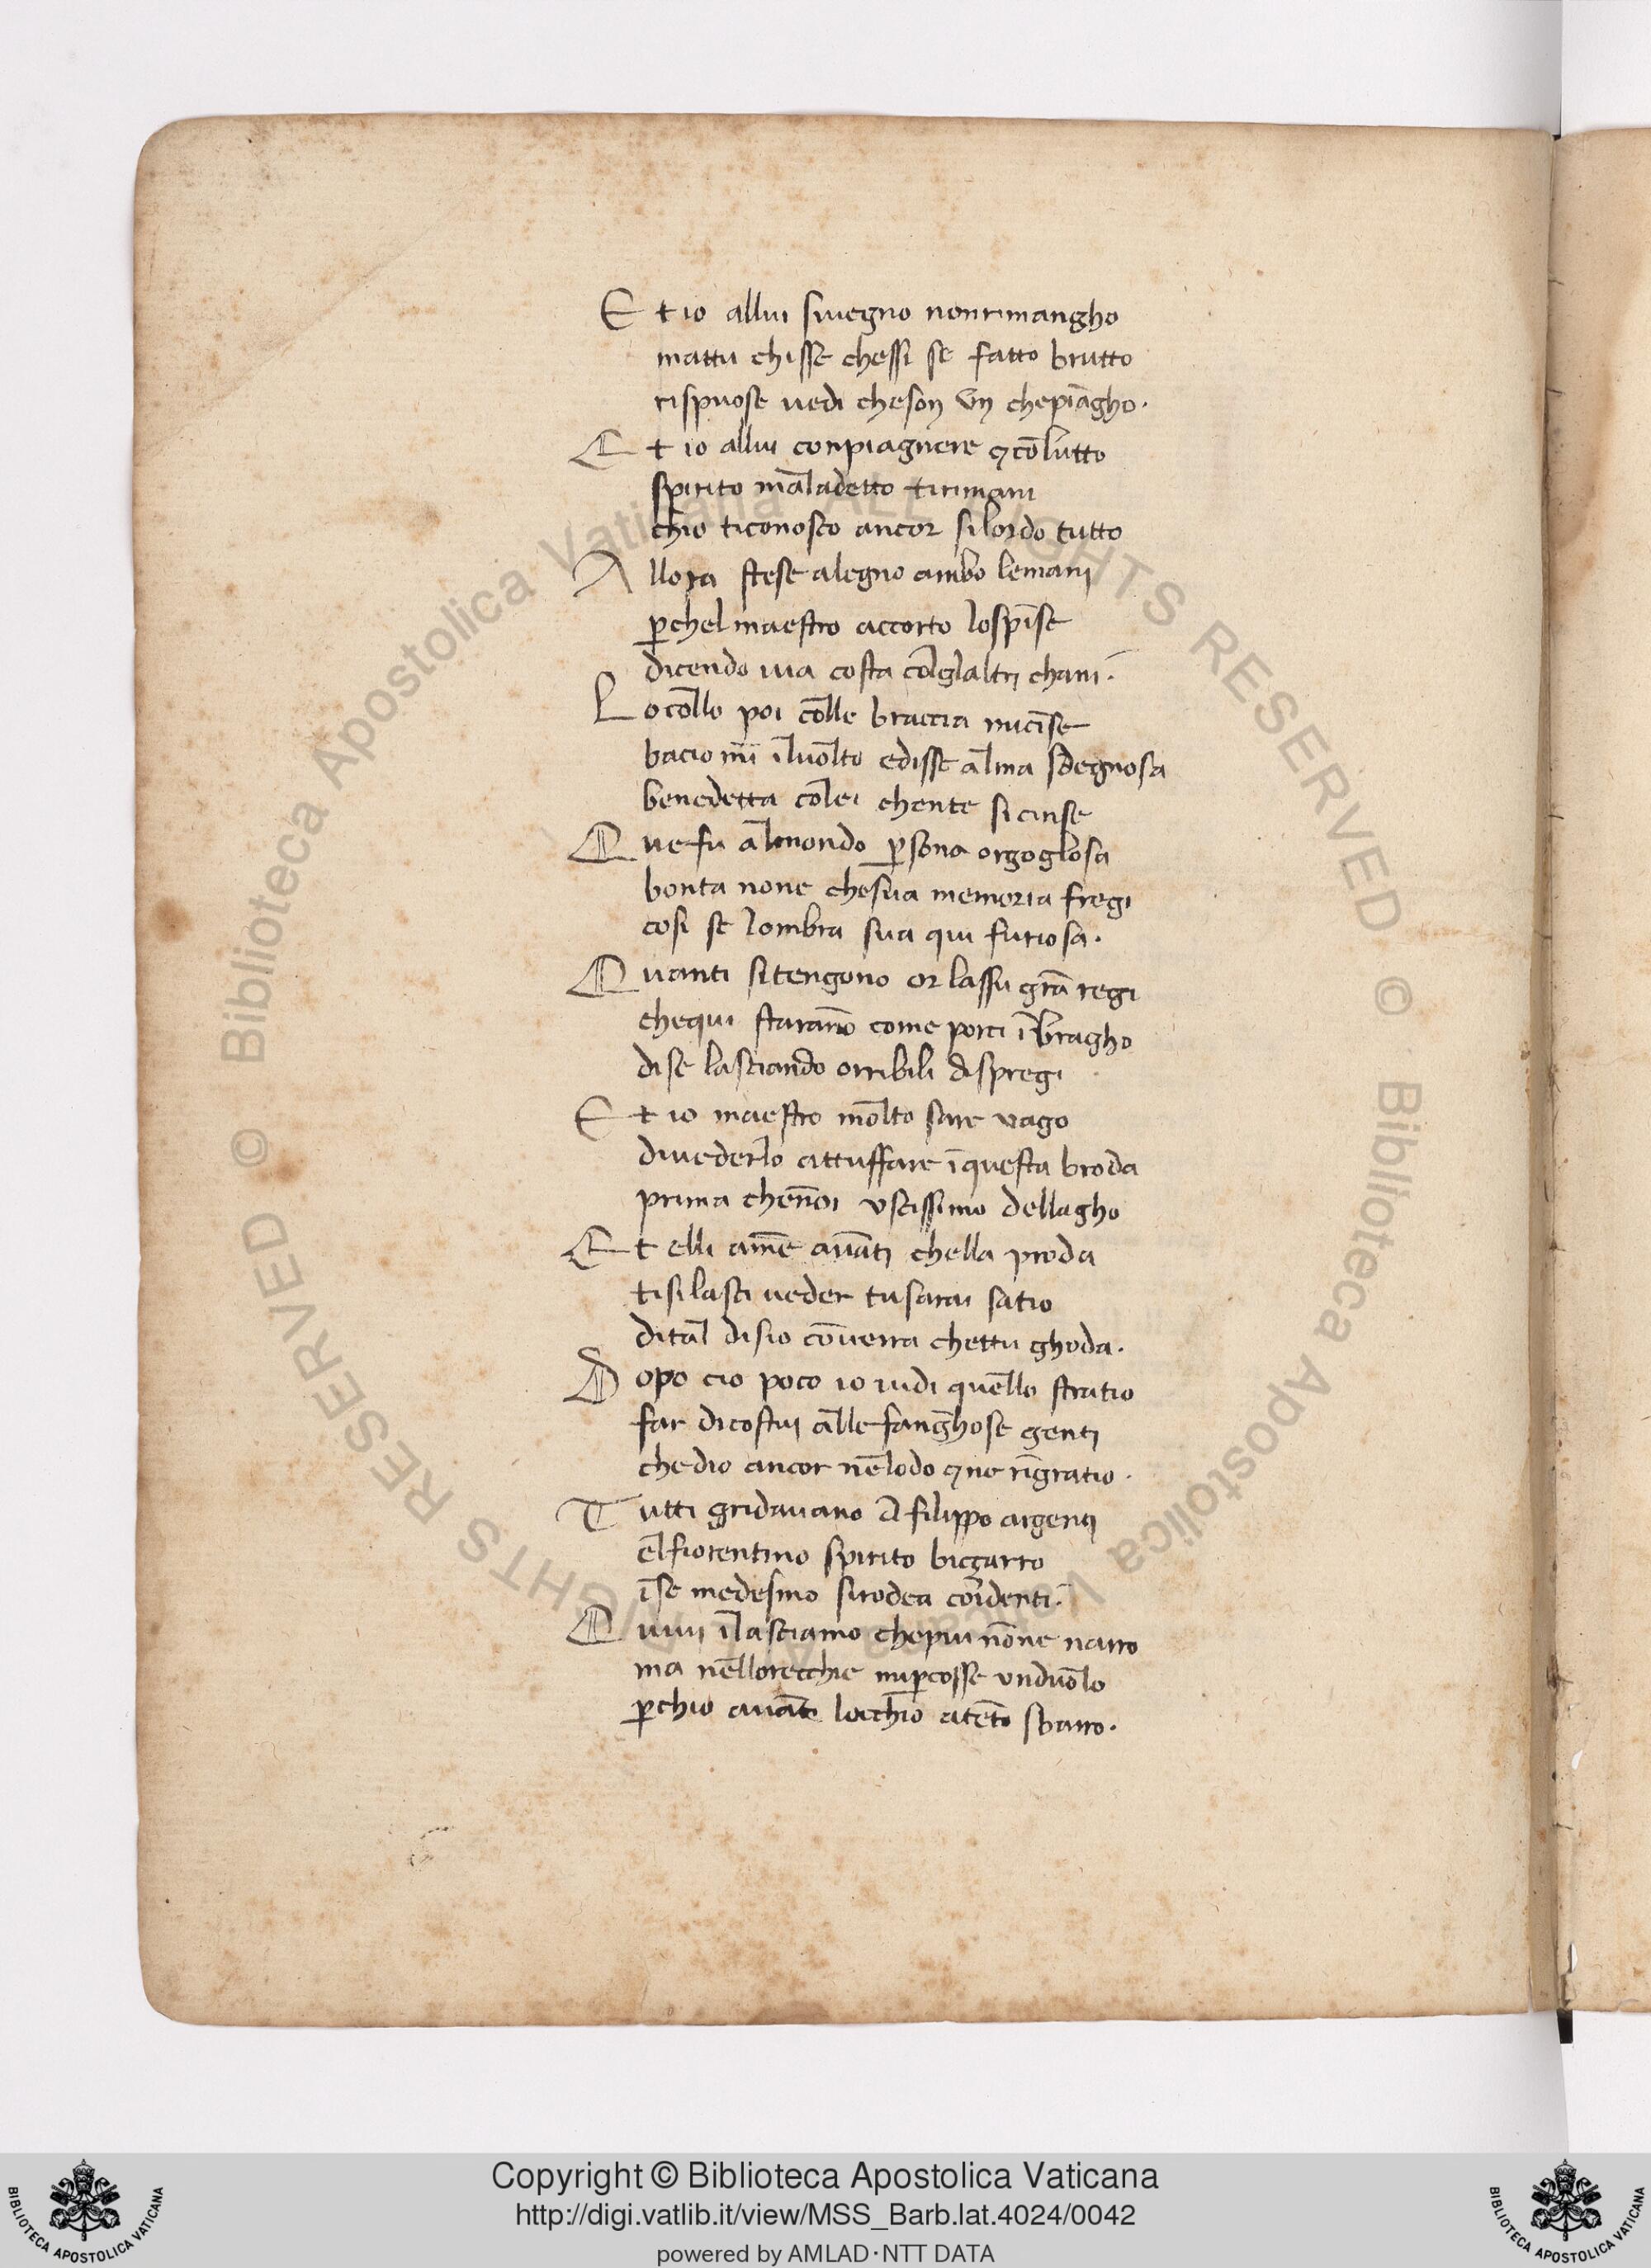 E t io allui siuegno nonrimangho
mattu chisse chessi se fatto brutto
rispuose uedi cheson vn chepiāgho·
E t io allui conpiagnere ⁊cōlutto
spirito māladetto tirimani
chio ticonosco ancor silordo tutto
A llora stese alegno ambo lemani
ꝑchel maestro accorto lospīse
dicendo uia costa cōglaltri chani·
L ocōllo poi cōlle braccia micīse
baciomī īluōlto edisse alma sdegnosa
benedetta cōlei chente sicinse
Q ue fu almondo ꝑsona orgoglosa
bonta none chesua memoria fregi
cosi se lombra sua qui furiosa·
Q uanti sitengono or lassu grā regi
chequi starāno come porci ībragho
dise lasciando orribili dispregi
E t io maestro mōlto sare uago
diuederlo attuffare īquesta broda
prima chenōi vscissimo dellagho
E t elli amē auāti chella proda
tisilasci ueder tusarai satio
dital disio cōuerra chettu ghoda·
D opo cio poco io uidi quello stratio
far dicostui alle fanghose genti
chedio ancor nēlodo ⁊ne rīgratio·
T utti gridauano A filippo argenti
elfiorentino spirito biççarro
īse medesmo sirodea cōidenti·
Q uiui īlasciamo chepiu nōne narro
ma nēllorecchie miꝑcosse vnduōlo
ꝑchio auāte locchio atēto sbarro·
© Biblioteca Apostolica Vaticana ALL RIGHTS RESERVED © Biblioteca Apostolica Vaticana ALL RIGHTS RESERVED
Copyright © Biblioteca Apostolica Vaticana
http://digi.vatlib.it/view/MSS_Barb.lat.4024/0042
powered by AMLAD·NTT DATA
BIBLIOTECA APOSTOLICA VATICANA
BIBLIOTECA APOSTOLICA VATICANA